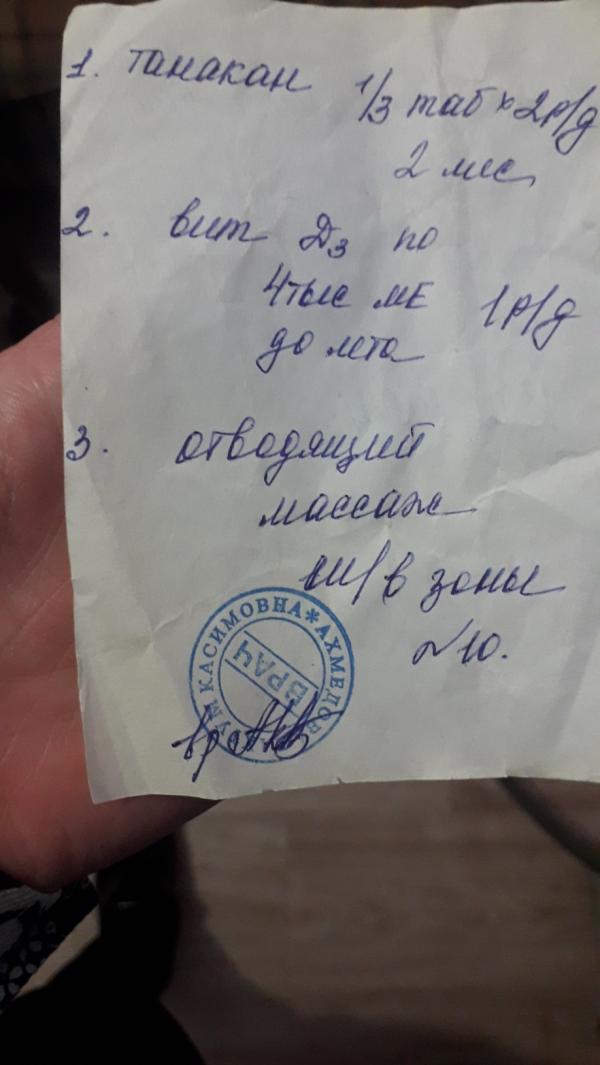 1. танакан 1/3 таб х 2р/д
2 мес
2. вит Д3 по
4тыс МЕ 1р/д
до лета
3. отводящий
массаж
ш/в зоны
№10.
КАСИМОВНА * АХМЕДОВ
ВРАЧ